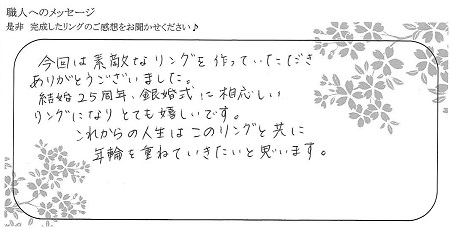 職人へのメッセージ
是非 完成したリングのご感想をお聞かせください♪
今回は素敵なリングを作っていただき
ありがとうございました。
結婚25周年、銀婚式に相応しい
リングになりとても嬉しいです。
これからの人生はこのリングと共に
年輪を重ねていきたいと思います。